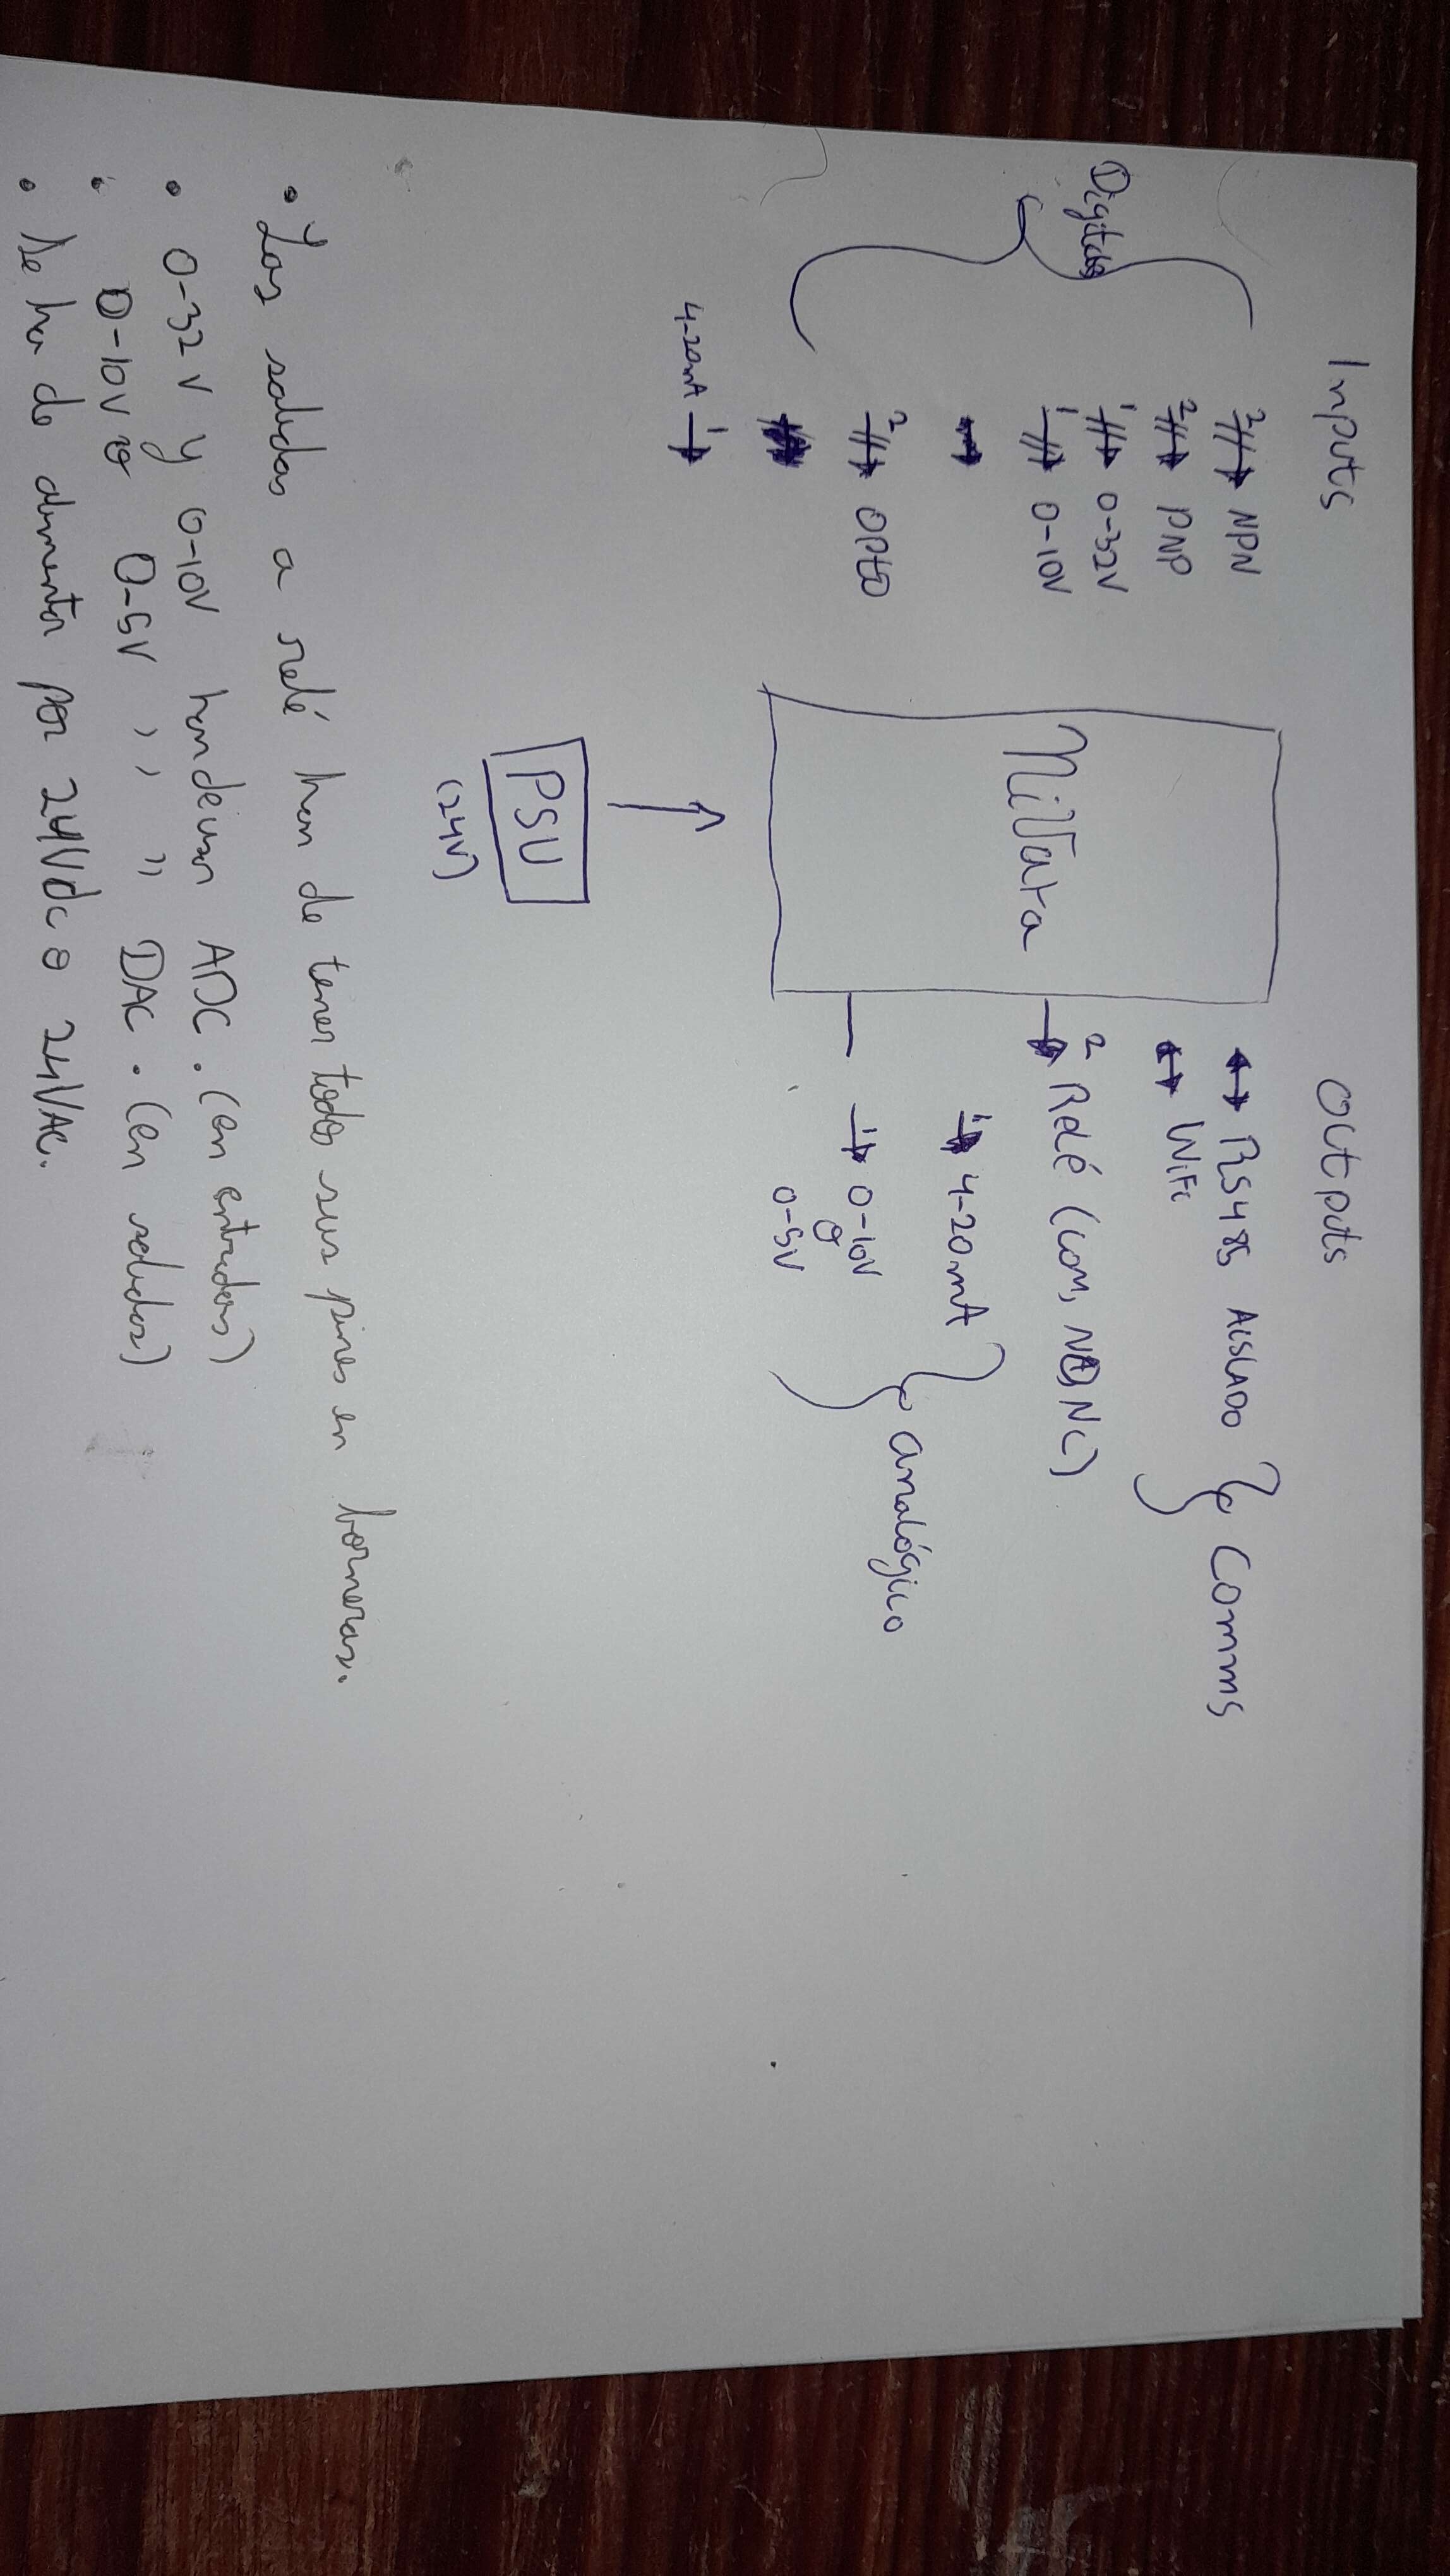 Inputs
Outputs
Digitales
2 NPN
2 PNP
1 0-32V
1 0-10V
2 OPTO
1 4-20mA
NiVara
PSU
(24V)
RS485 AISLADO
WiFi
Comms
2 Relé (com, NO, NC)
1 4-20mA
1 0-10V
o
0-5V
analógico
• Las salidas a relé han de tener todos sus pines en borneras.
• 0-32V y 0-10V han de usar ADC. (en entradas)
• 0-10V o 0-5V " " " DAC. (en salidas)
• Se ha de alimentar por 24Vdc o 24VAC.